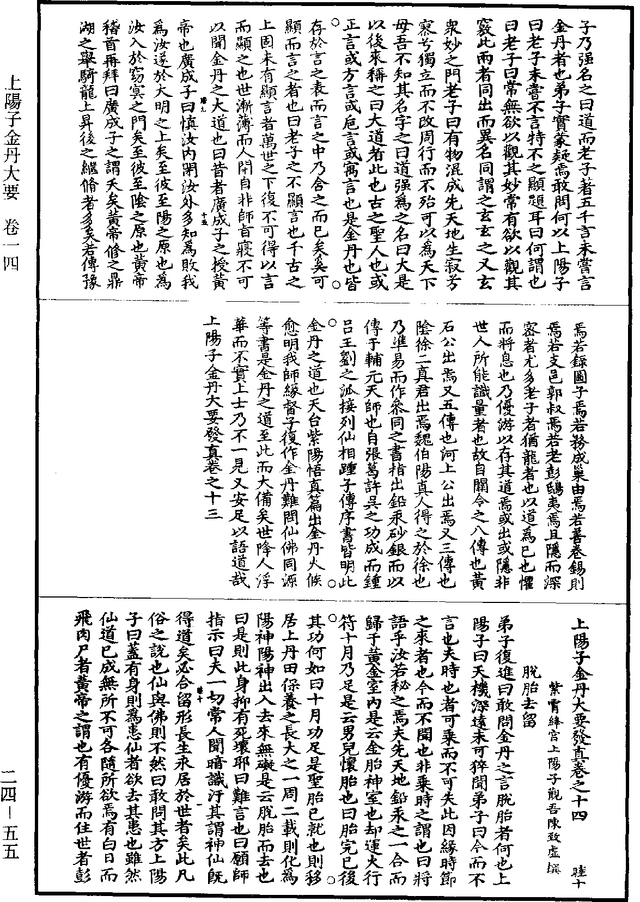 子乃强名之曰道而老子著五千言未嘗言
金丹者也弟子實蒙疑焉敢問何以上陽子
曰老子未嘗不言特不之顯題耳曰何謂也
曰老子曰常無欲以觀其妙常有欲以觀其
竅此兩者同出而異名同謂之玄玄之又玄
衆妙之門老子曰有物混成先天地生寂兮
寥兮獨立而不改周行而不殆可以為天下
母吾不知其名字之曰道强為之名曰大是
以後來稱之曰大道者此也古之聖人也或
正言或方言或卮言或寓言也是金丹也皆
存於言之表而言之中乃含之而已矣奚可
顯而言之者也曰老子之不顯言也千古之
上固未有顯言者萬世之下復不可得以言
而顯之也世漸薄而人閉自非師旨寂不可
以聞金丹之大道也曰昔者廣成子之授黃
帝也廣成子曰慎汝內閉汝外多知為敗我
為汝遂於大明之上矣至彼至陽之原也為
汝入於窈冥之門矣至彼至陰之原也黃帝
稽首再拜曰廣成子之謂天矣黃帝修之鼎
湖之舉騎龍上昇後之繼脩者多矣若傳豫
焉若錄圖子焉若務成巢由焉若善卷錫則
焉若支邑郭叔焉若老彭鴟夷焉且隱而深
密者尤多老子者猶龍者也以道為已也懼
而將息也乃優游以存其道焉或出或隱非
世人所能識量者也故自關令之八傳也黃
石公出焉又五傳也河上公出焉又三傳也
陰徐二真君出焉魏伯陽真人得之於徐也
乃準易而作參同之書指出鉛汞砂銀而以
傳于輔元天師也自張葛許吳之功成而鍾
呂王劉之派接列仙相踵子傳序書皆明此
金丹之道也天台紫陽悟真篇出金丹火候
愈明我師緣督子復作金丹難問仙佛同源
等書是金丹之道至此而大備矣世降人浮
華而不實上士乃不一見又安足以語道哉
上陽子金丹大要發真卷之十三
上陽子金丹大要發真卷之十四 睦十
紫霄絳宮上陽子觀吾陳致虛撰
脫胎去留
弟子復進曰敢問金丹之言脫胎者何也上
陽子曰天機深遠未可猝聞弟子曰今而不
言也夫時也者可乘而不可失此因緣時節
之來者也今而不聞也非乘時之謂也曰將
語乎汝若秘之焉夫先天地鉛汞之一合而
歸于黃金室內是云金胎神室也却運火行
符十月乃足是云男兒懷胎也曰胎完已後
其功何如曰十月功足是聖胎已就也則移
居上丹田保養之長大之一周二載則化為
陽神陽神出入去來無礙是云脫胎而去也
曰是則此身抑有死壞耶曰難言也曰願師
指示曰夫一切常人聞暗識汙其謂神仙既
得道矣必合留形長生永居於世者矣此凡
俗之說也仙與佛則不然曰敢問其方上陽
子曰蓋有身則為患仙者欲去其患也雖然
仙道已成無所不可各隨所欲焉有白日而
飛肉尸者黃帝之謂也有優游而住世者彭
上陽子金丹大要 卷一四
二四－五五